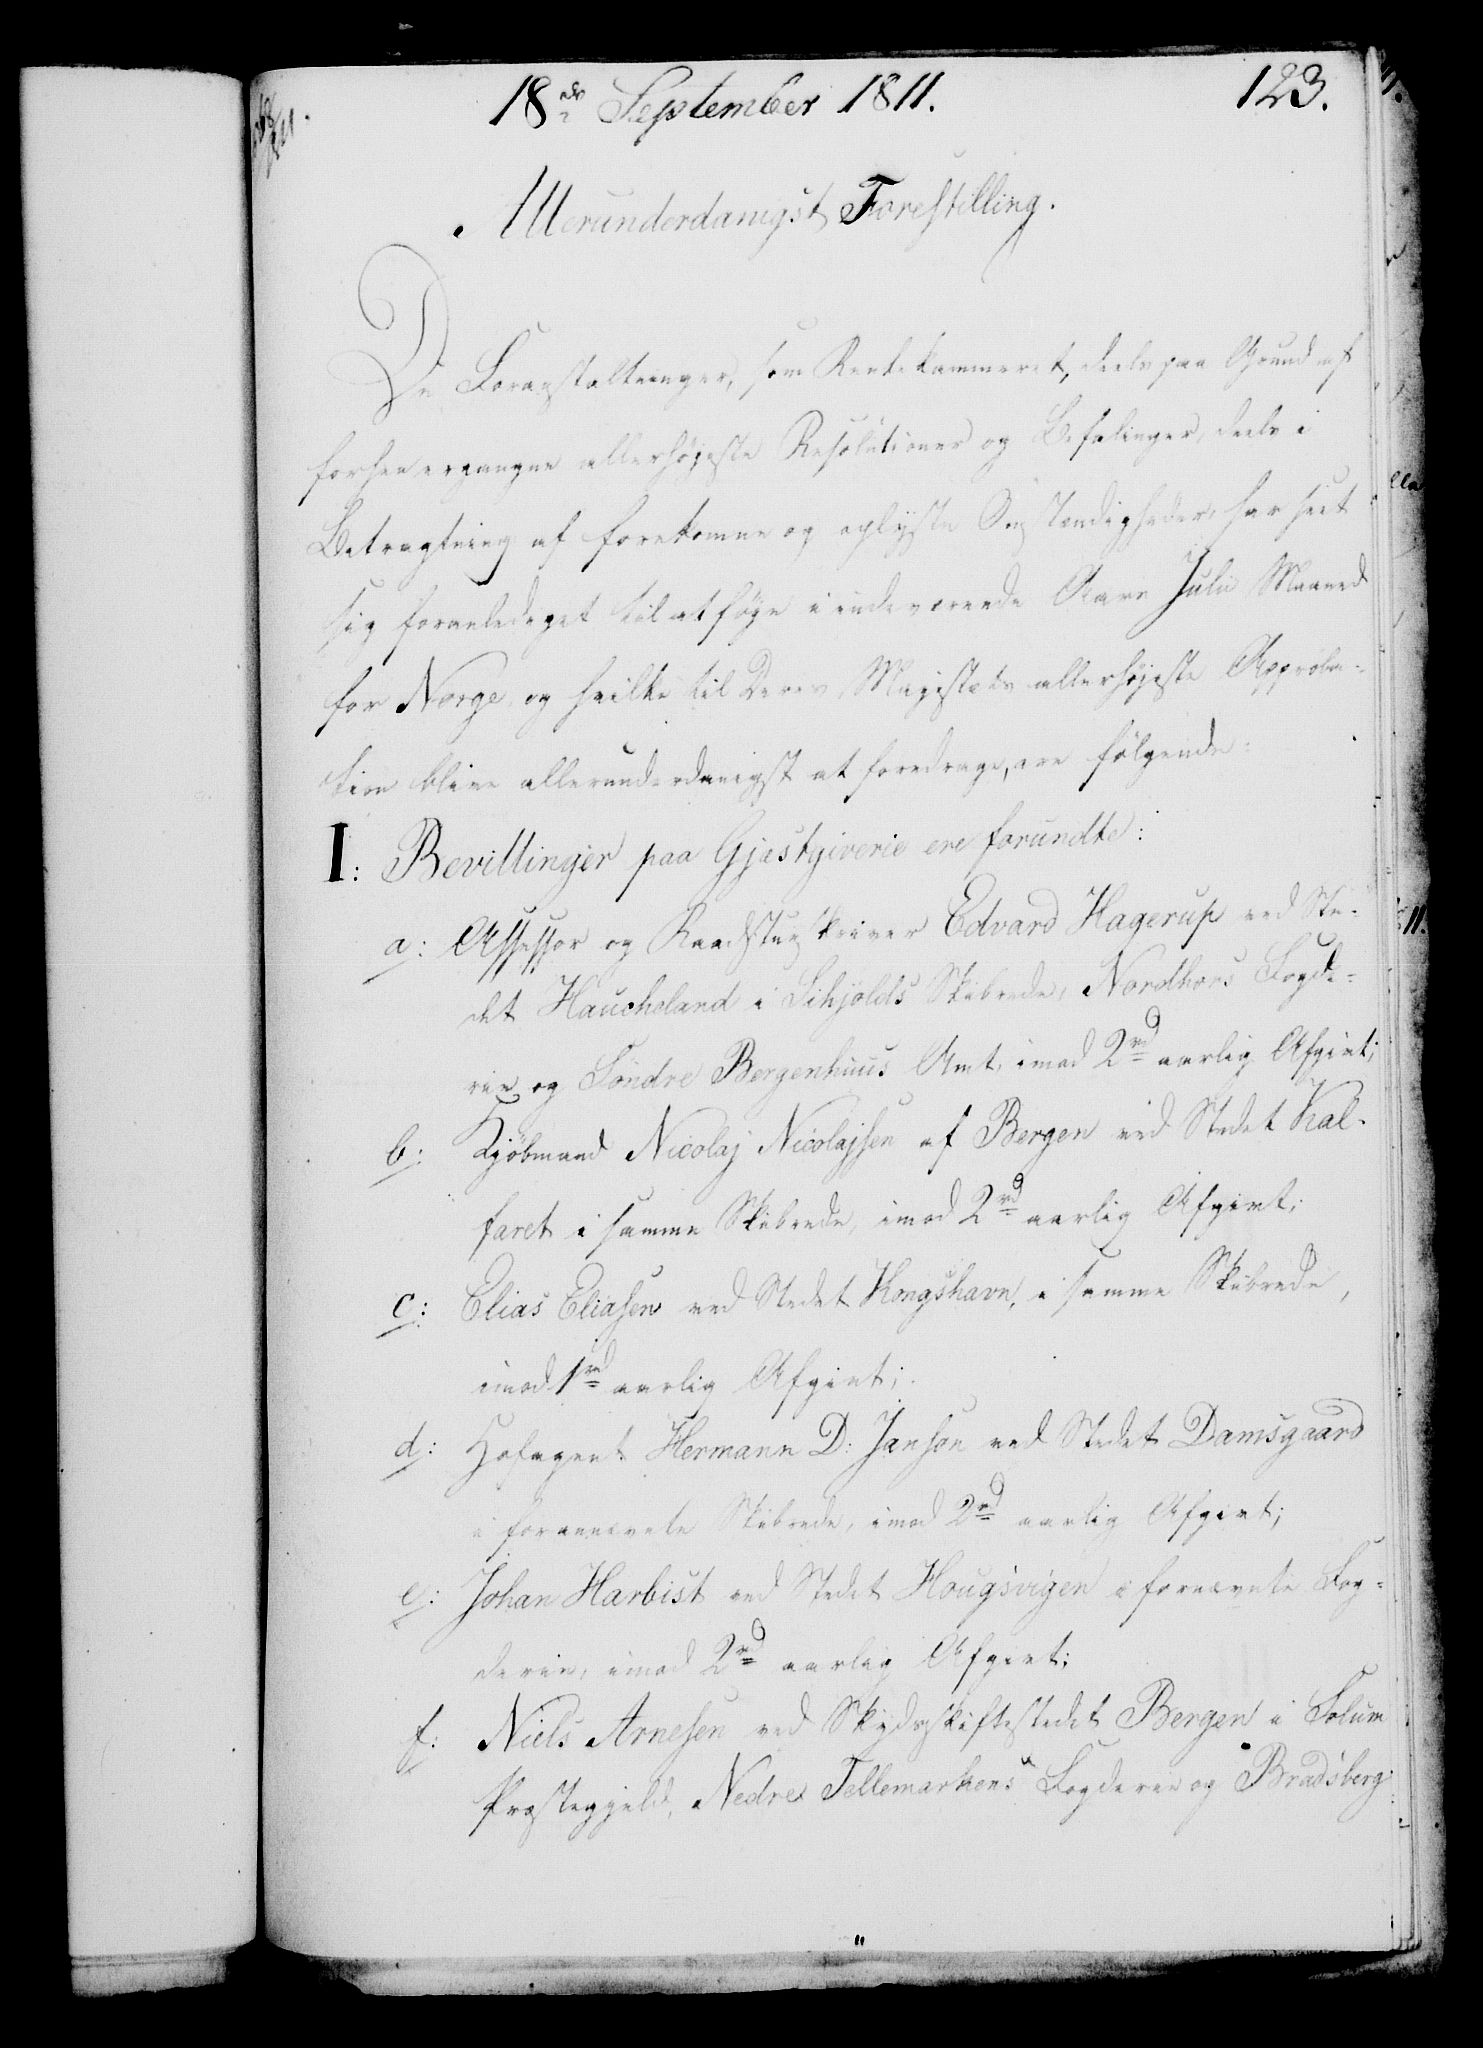 18de September 1811.
123.
Allerunderdanigst Forestilling.
De Foranstaltninger, som Rentekammeret, deels paa Grund af
forhen ergangne allerhøjeste Resolutioner og Befalinger, deels i
Betragtning af forekomne og oplyste Omstændigheder, har seet
sig foranlediget til at føje i indeværende Aars Julii Maaned
for Norge, og hvilke til Deres Majestæts allerhøjeste Approba-
tion blive allerunderdanigst at foredrage, ere følgende:
I: Bevillinger paa Gjæstgiverie ere forundte:
a: Assessor og Raadstueskriver Edvard Hagerup ved Ste-
det Haucheland i Schjolds Skibrede, Nordhors Fogde-
rie og Søndre Bergenhuus Amt, imod 2rd aarlig Afgivt;
b: Kjøbmand Nicolaj Nicolajsen af Bergen ved Stedet Kal-
faret i samme Skibrede, imod 2rd aarlig Afgivt;
c: Elias Eliasen ved Stedet Kongshavn, i samme Skibrede,
imod 1rd aarlig Afgivt;
d: Hofagent Hermann D: Janson ved Stedet Damsgaard
i forannævnte Skibrede, imod 2rd aarlig Afgivt;
e: Johan Harbist ved Stedet Hougsvigen i fornævnte Fog-
derie, imod 2rd aarlig Afgivt;
f: Niels Arnesen ved Skydsskiftestedet Bergen i Solum
Præstegjeld, Nedre Tellemarkens Fogderie og Bradsberg